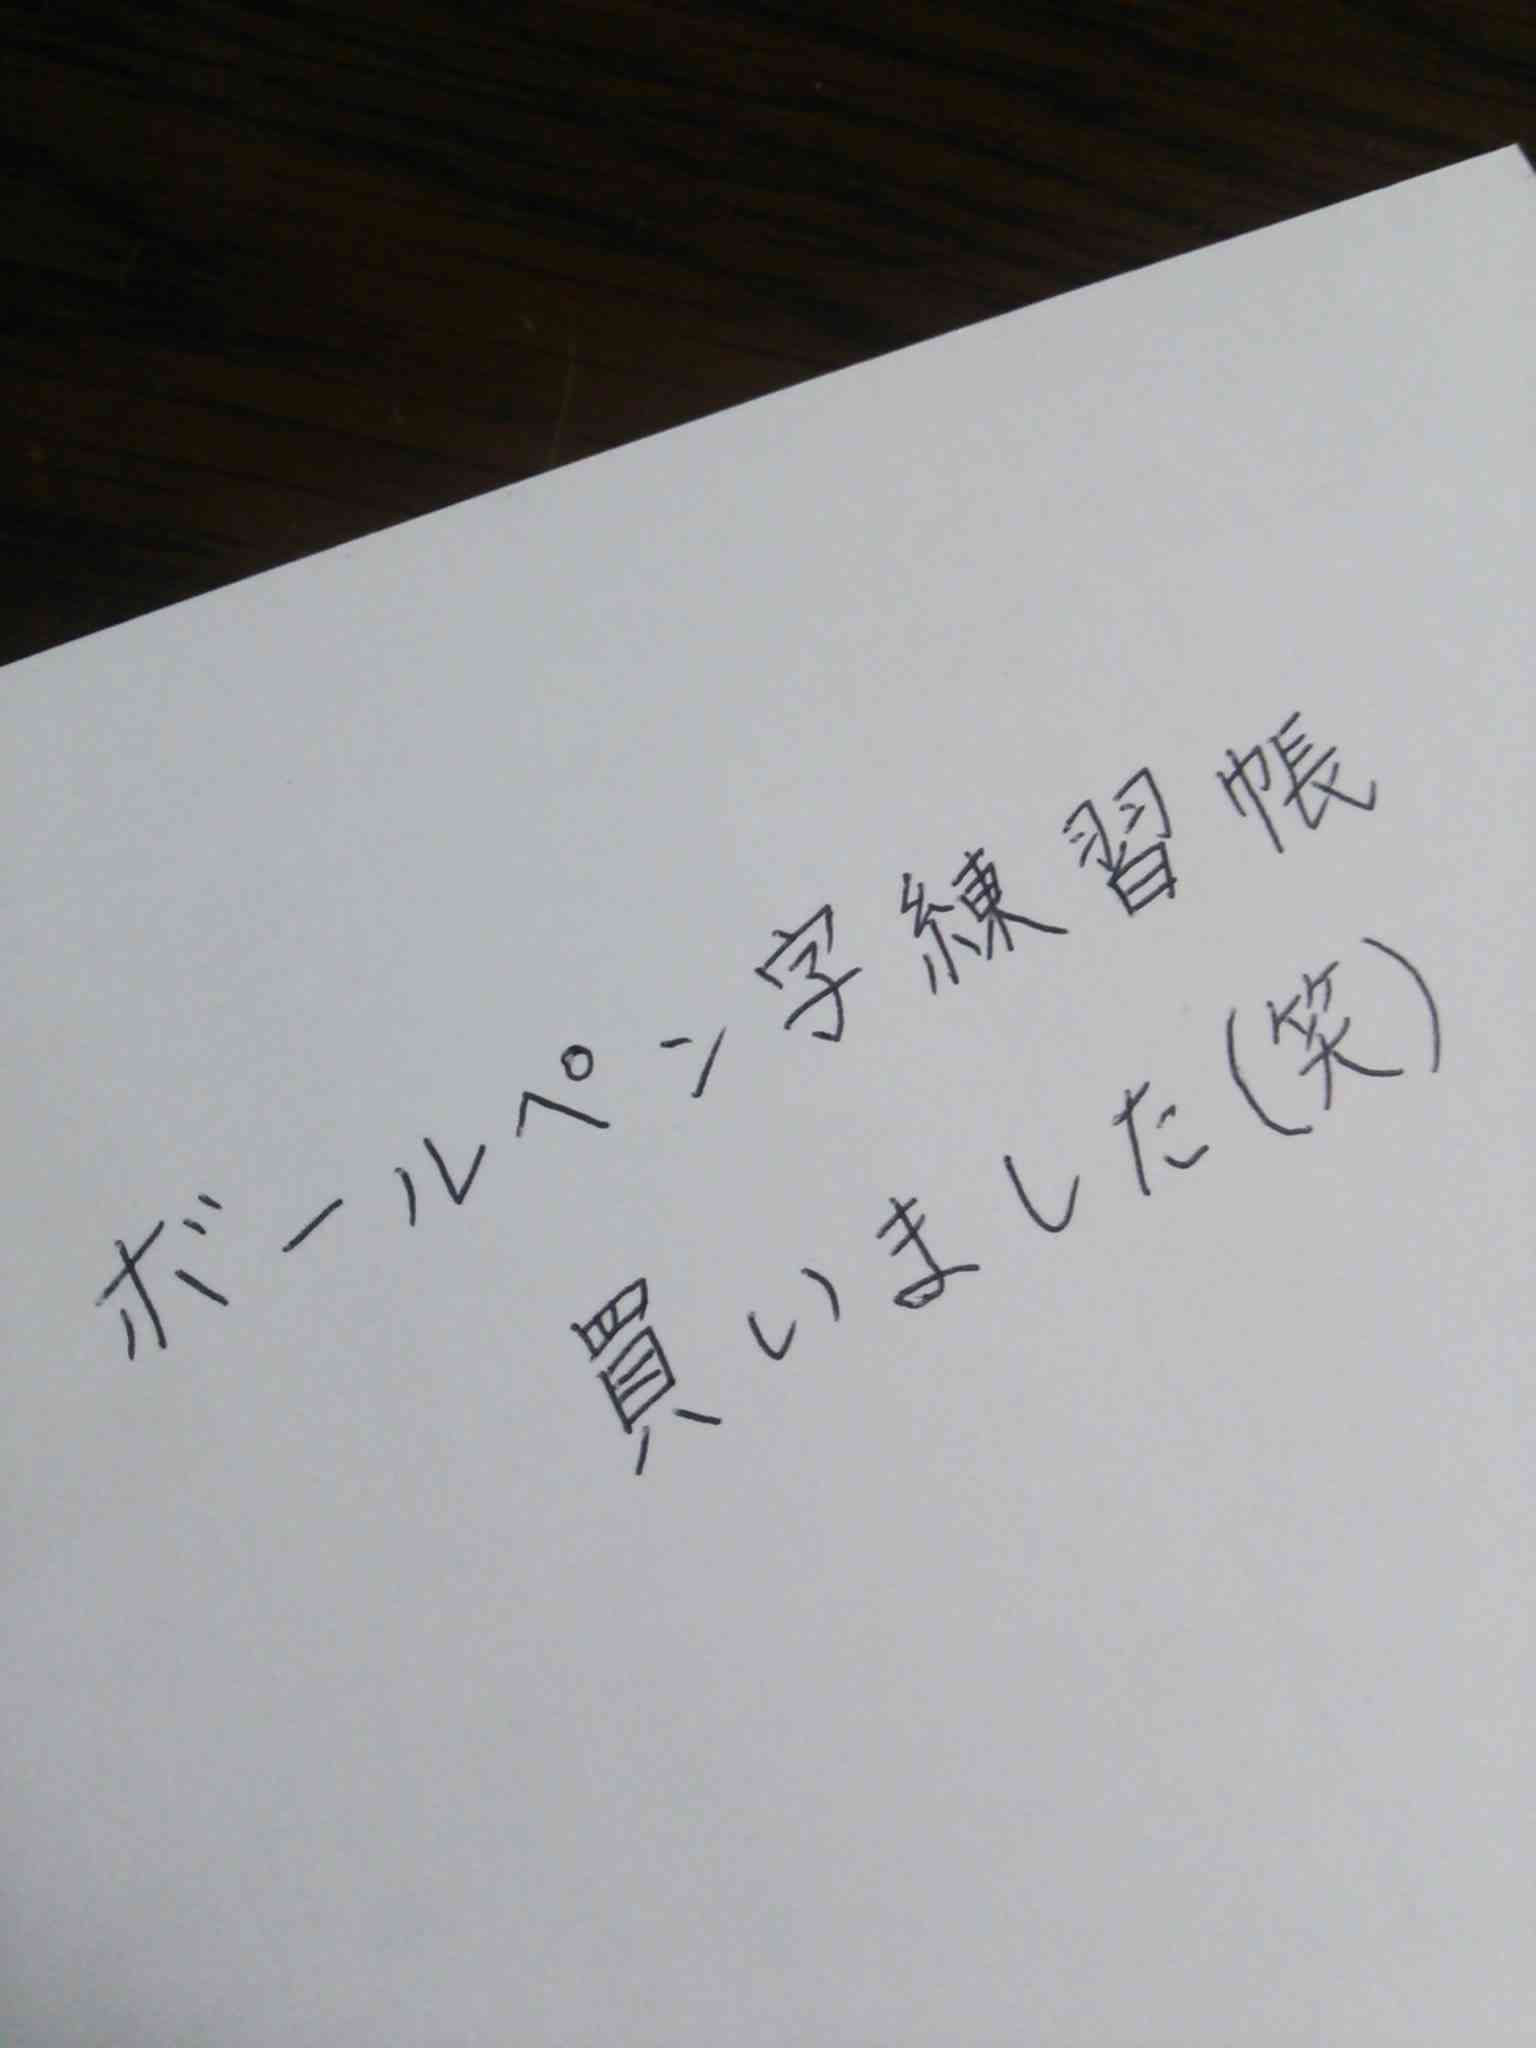 ボールペン字練習帳
買いました(笑)